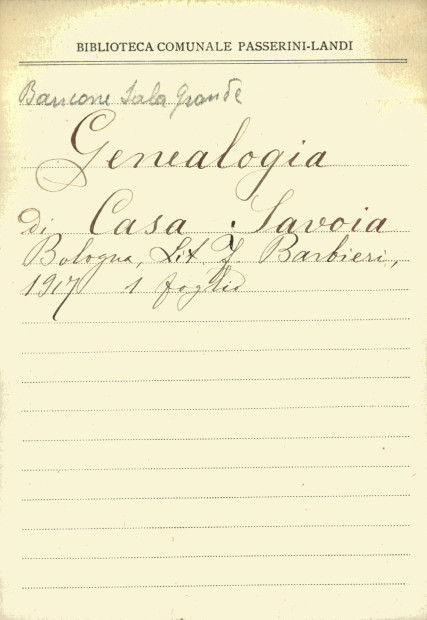 BIBLIOTECA COMUNALE PASSERINI-LANDI
Bancone Sala Grande
Genealogia
di Casa Savoia
Bologna, Lit. F. Barbieri,
1917 1 foglio